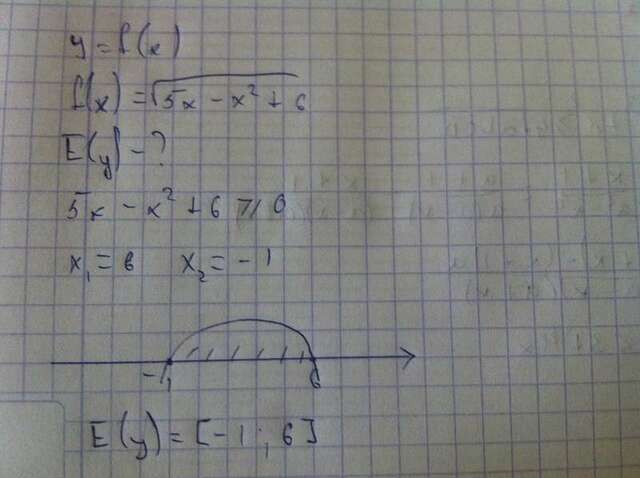 y = f(x)
f(x) = √5x - x² + 6
E(y) - ?
5x - x² + 6 ⩾ 0
x₁ = 6 x₂ = -1
-1 6
E(y) = [-1; 6]